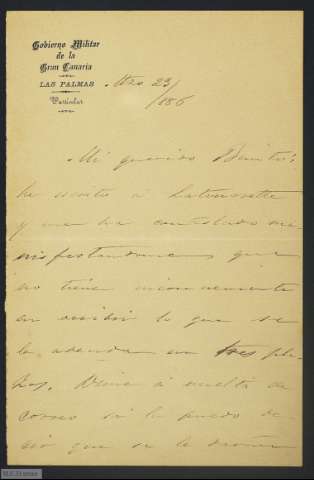 Gobierno Militar
de la
Gran Canaria
LAS PALMAS
Particular
Mzo 23/
/86
Mi querido Benito:
he escrito á
y me ha contestado ma-
nifestandome que
no tiene inconveniente
en recibir lo que se
le adeuda en tres pla-
zos. Dime á vuelta de
correo si le puedo de-
cir que se le